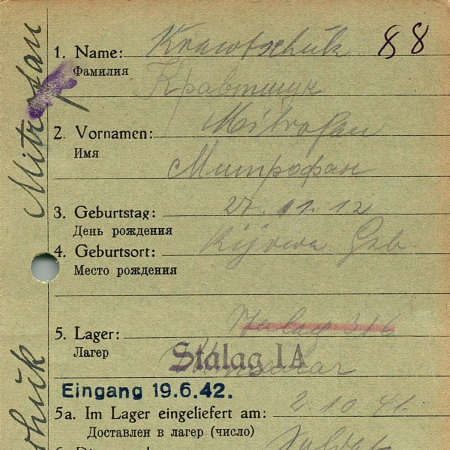 Mitrofan
1. Name: Krawtschuk 88
Фамилия Кравтшук
2. Vornamen: Mitrofan
Имя Митрофан
3. Geburtstag: 27. 11. 12
День рождения
4. Geburtsort: Kijowa Geb.
Место рождения
5. Lager:
Лагер Stalag IA
Eingang 19.6.42.
5a. Im Lager eingeliefert am: 2. 10. 41.
Доставлен в лагер (число)